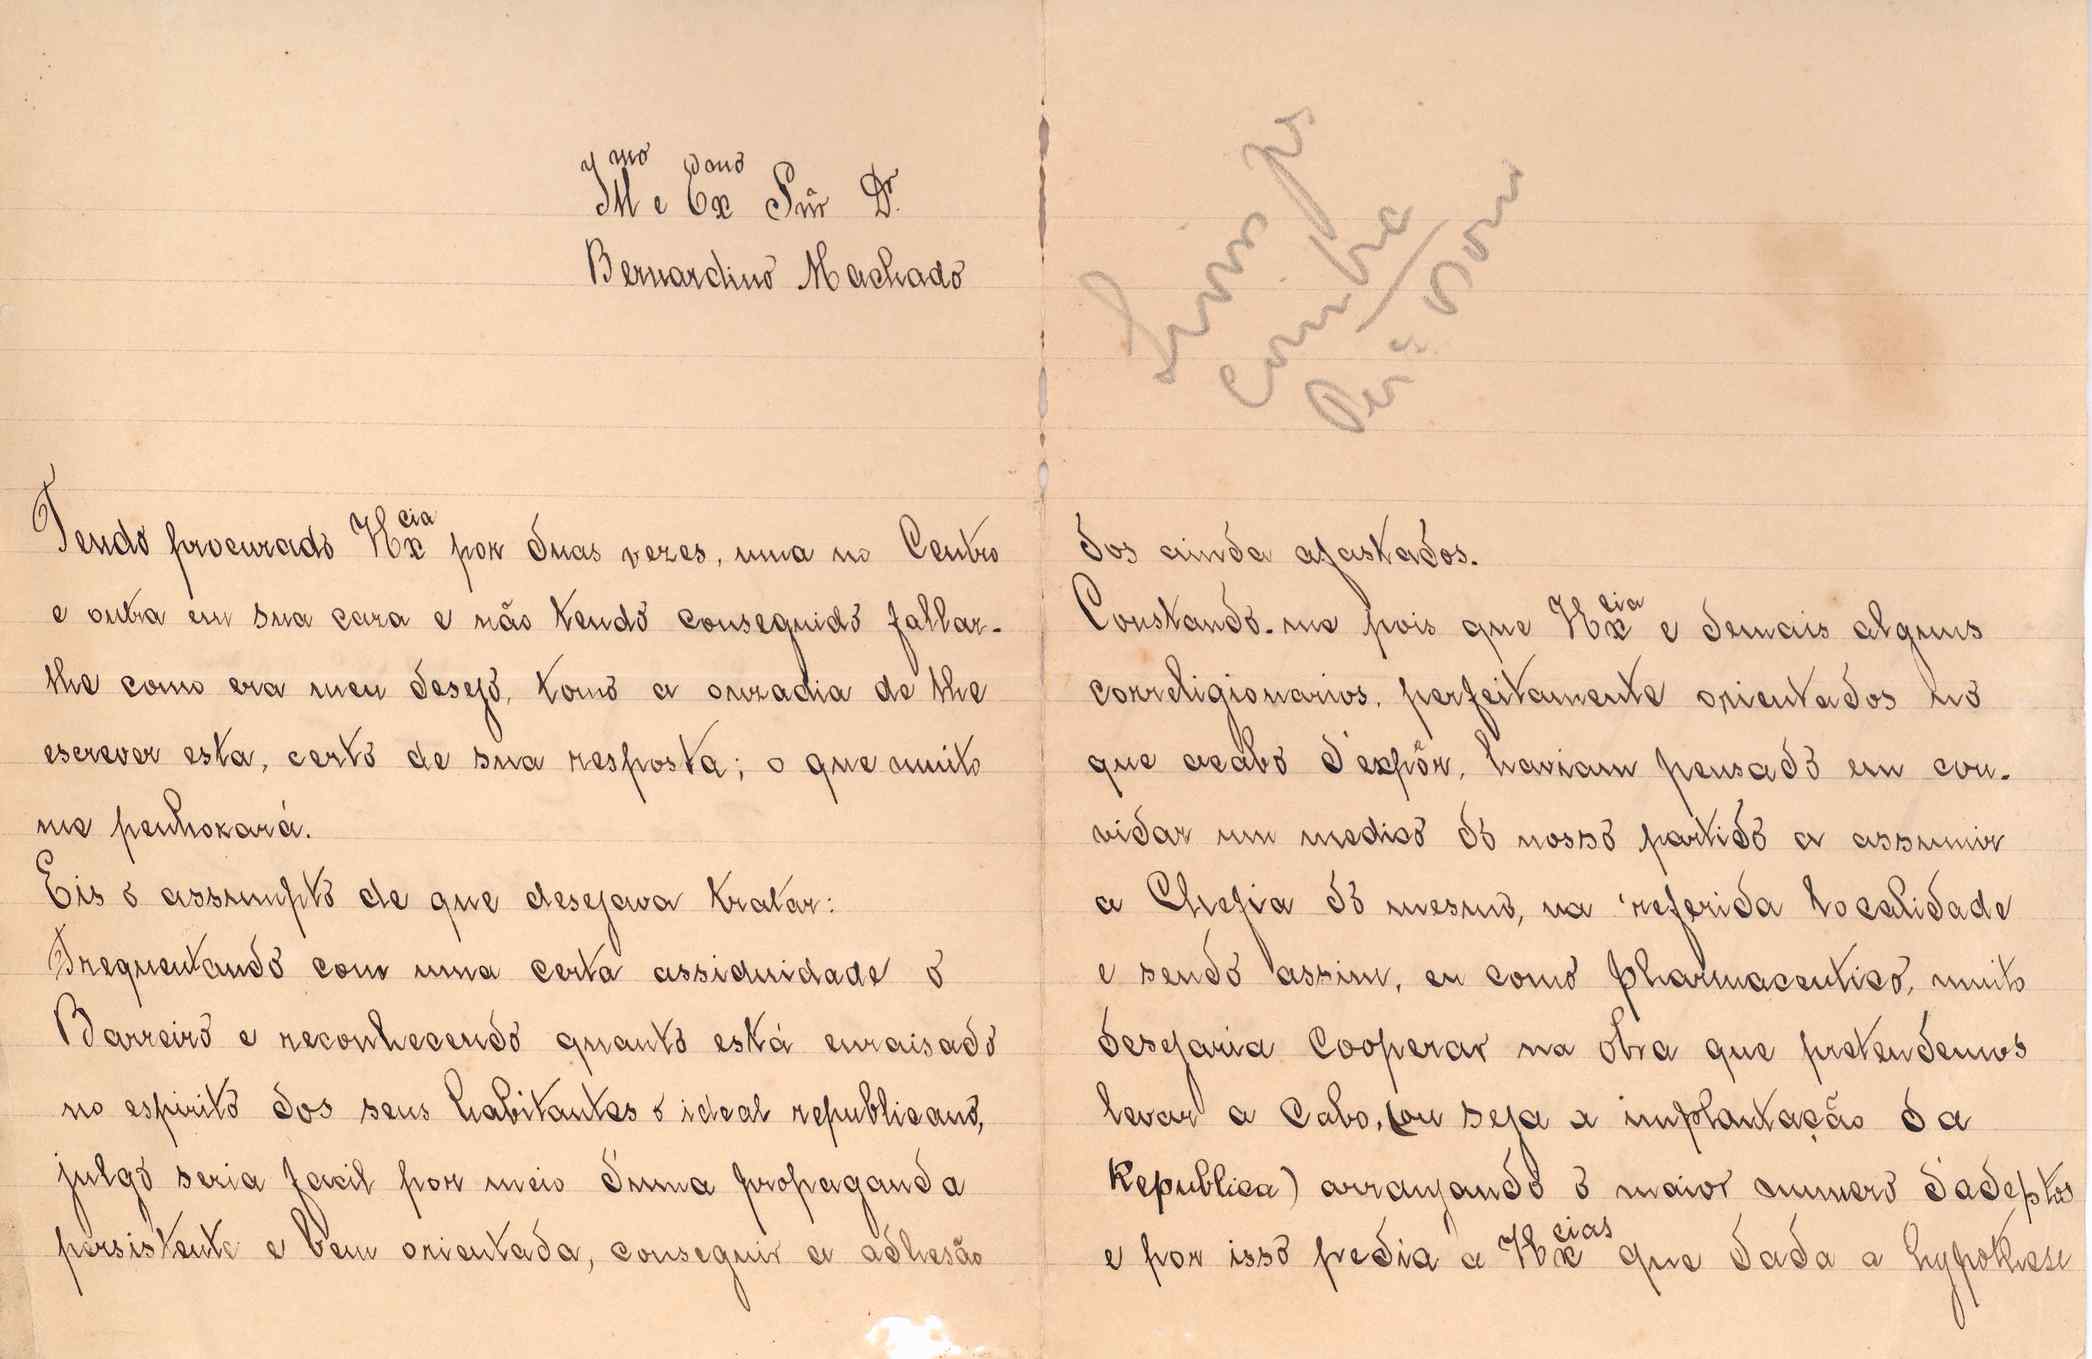 Illmo e Exmo Snr Dr.
Bernardino Machado
Tendo procurado V Excia por duas vezes, uma no Centro
e outra em sua caza e não tendo conseguido fallar-
lhe como era meu desejo, tomo a ouzadia de lhe
escrever esta, certo de sua resposta; o que muito
me penhorará.
Eis o assumpto de que desejava tratar:
Frequentando com uma certa assiduidade o
Barreiro e reconhecendo quanto está enraisado
no espirito dos seus habitantes o ideal republicano,
julgo seria facil por meio d'uma propaganda
persistente e bem orientada, conseguir a adhesão
dos ainda afastados.
Constando-me pois que V Excia e demais alguns
correligionarios, perfeitamente orientados no
que acabo d'expôr, haviam pensado em con-
vidar um medico do nosso partido a assumir
a Chefia do mesmo, na referida localidade
e sendo assim, eu como pharmaceutico, muito
desejaria cooperar na obra que pretendemos
levar a cabo, (ou seja a implantação da
Republica) arranjando o maior numero d'adeptos
e por isso pedia a V Excias que dada a hypothese